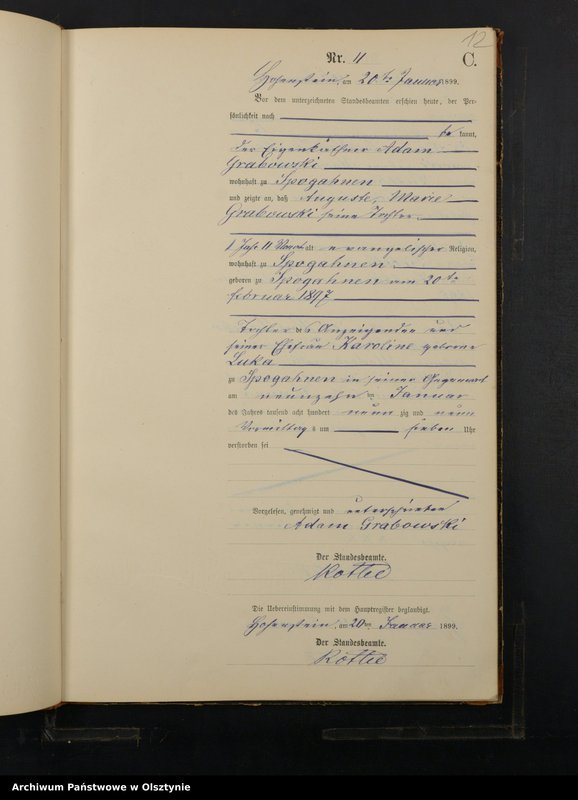 12
Nr. 11
C.
Hohenstein, am 20ten Januar 1899.
Vor dem unterzeichneten Standesbeamten erschien heute, der Per-
sönlichkeit nach
be kannt,
der Eigenkäthner Adam
Grabowski
wohnhaft zu Spogahnen
und zeigte an, daß Auguste, Marie
Grabowski seine Tochter
1 Jahr 11 Monat alt evangelischer Religion,
wohnhaft zu Spogahnen
geboren zu Spogahnen am 20ten
Februar 1897
Tochter des Anzeigenden und
seiner Ehefrau Karoline geborene
Luka
zu Spogahnen in seiner Gegenwart
am neunzehn ten Januar
des Jahres tausend acht hundert neun zig und neun
Vormittag s um sieben Uhr
verstorben sei
Vorgelesen, genehmigt und unterschrieben
Adam Grabowski
Der Standesbeamte.
Die Uebereinstimmung mit dem Hauptregister beglaubigt.
Hohenstein, am 20ten Januar 1899.
Der Standesbeamte.
Archiwum Państwowe w Olsztynie